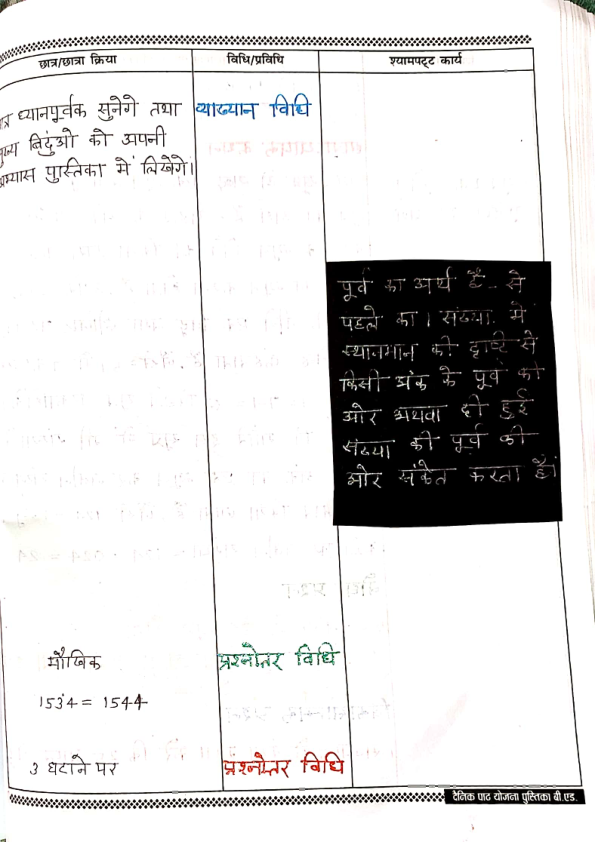 छात्र/छात्रा क्रिया
विधि/प्रविधि
श्यामपट्ट कार्य
ध्यानपूर्वक सुनेगे तथा
बिदुंओ को अपनी
पुस्तिका में लिखेगे।
व्याख्यान विधि
पूर्व का अर्थ है - से
पहले का। संख्या में
स्थानमान की दृष्टि से
किसी अंक के पूर्व की
ओर अथवा दी हुई
संख्या की पूर्व की
ओर संकेत करता है।
मौखिक
प्रश्नोतर विधि
153̇4 = 1544
3 घटाने पर
प्रश्नोतर विधि
दैनिक पाठ योजना पुस्तिका बी.एड.